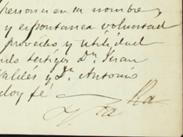 personas en su nombre
y espontanea voluntad
provecho y utilidad
testigos Dn. Juan
y Dn. Antonio
doy fé